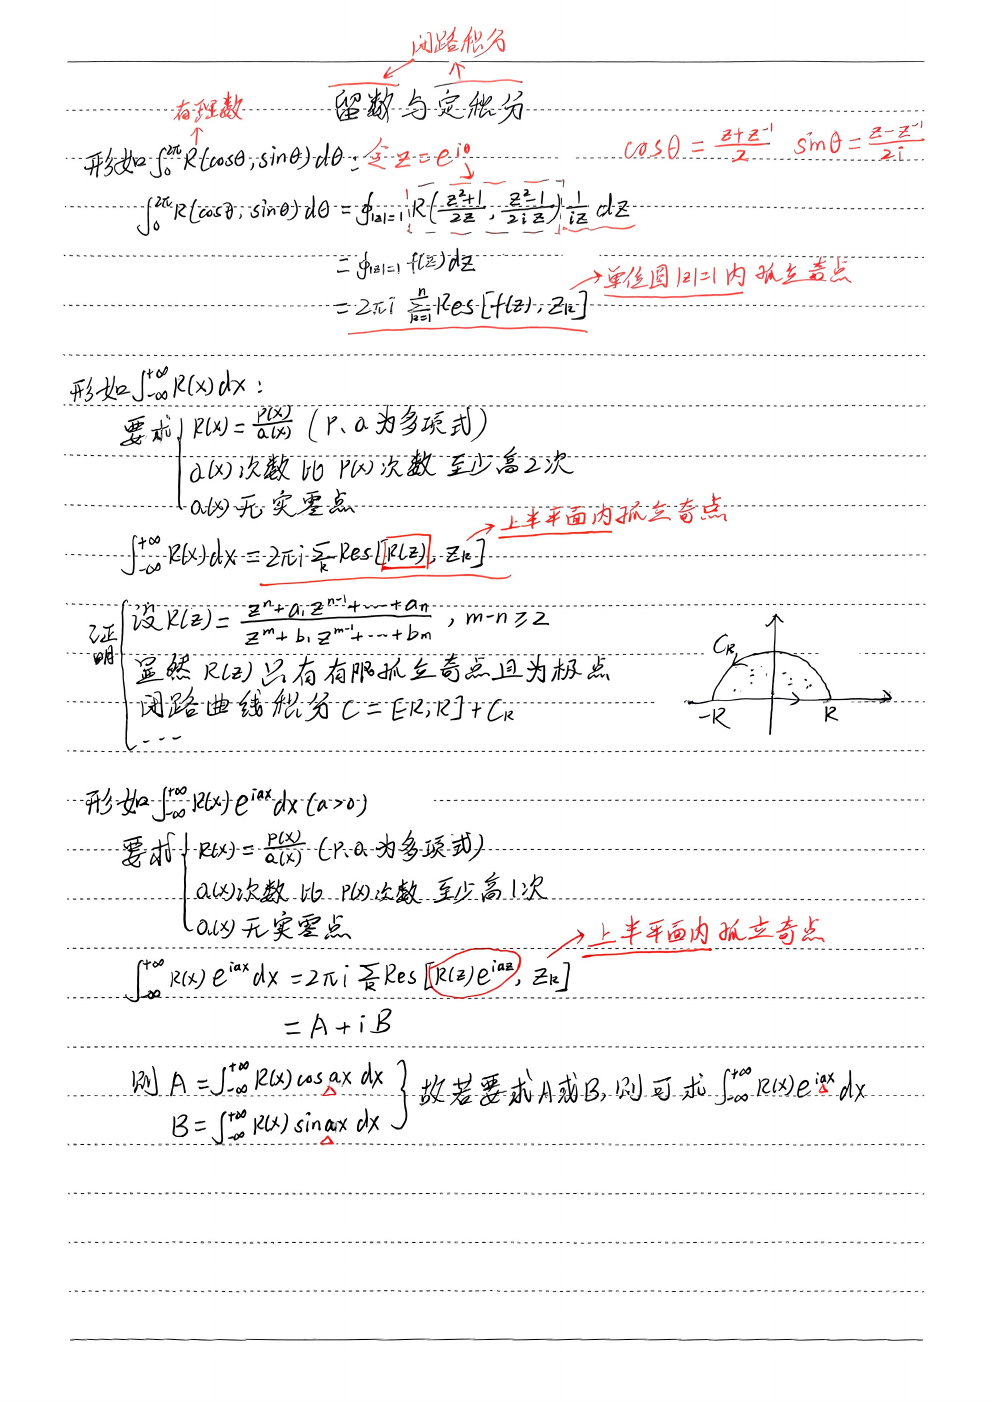 闭路积分
留数与定积分
有理数
形如∫₀^{2π} R(cosθ, sinθ)dθ: 令 z = e^{iθ}
cosθ = (z+z⁻¹)/2  sinθ = (z-z⁻¹)/2i
∫₀^{2π} R(cosθ, sinθ)dθ = ∮_{|z|=1} R((z²+1)/2z, (z²-1)/2iz) 1/iz dz
= ∮_{|z|=1} f(z)dz
= 2πi Σ_{k=1}^{n} Res[f(z), z_k] → 单位圆|z|=1内孤立奇点
形如∫_{-∞}^{+∞} R(x)dx:
要求 R(x) = P(x)/Q(x) (P、Q为多项式)
Q(x)次数比P(x)次数至少高2次
Q(x)无实零点
∫_{-∞}^{+∞} R(x)dx = 2πi Σ_k Res[R(z), z_k] → 上半平面内孤立奇点
证明 设R(z) = (zⁿ+a₁zⁿ⁻¹+…+aₙ)/(zᵐ+b₁zᵐ⁻¹+…+bₘ), m-n≥2
显然R(z)只有有限孤立奇点且为极点
闭路曲线积分 C = [-R,R]+C_R
...
C_R
-R  R
形如∫_{-∞}^{+∞} R(x)e^{iax}dx (a>0)
要求 R(x) = P(x)/Q(x) (P、Q为多项式)
Q(x)次数比P(x)次数至少高1次
Q(x)无实零点
∫_{-∞}^{+∞} R(x)e^{iax}dx = 2πi Σ_k Res[R(z)e^{iaz}, z_k] → 上半平面内孤立奇点
= A + iB
则 A = ∫_{-∞}^{+∞} R(x)cosax dx
B = ∫_{-∞}^{+∞} R(x)sinax dx
故若要求A或B, 则可求 ∫_{-∞}^{+∞} R(x)e^{iax}dx